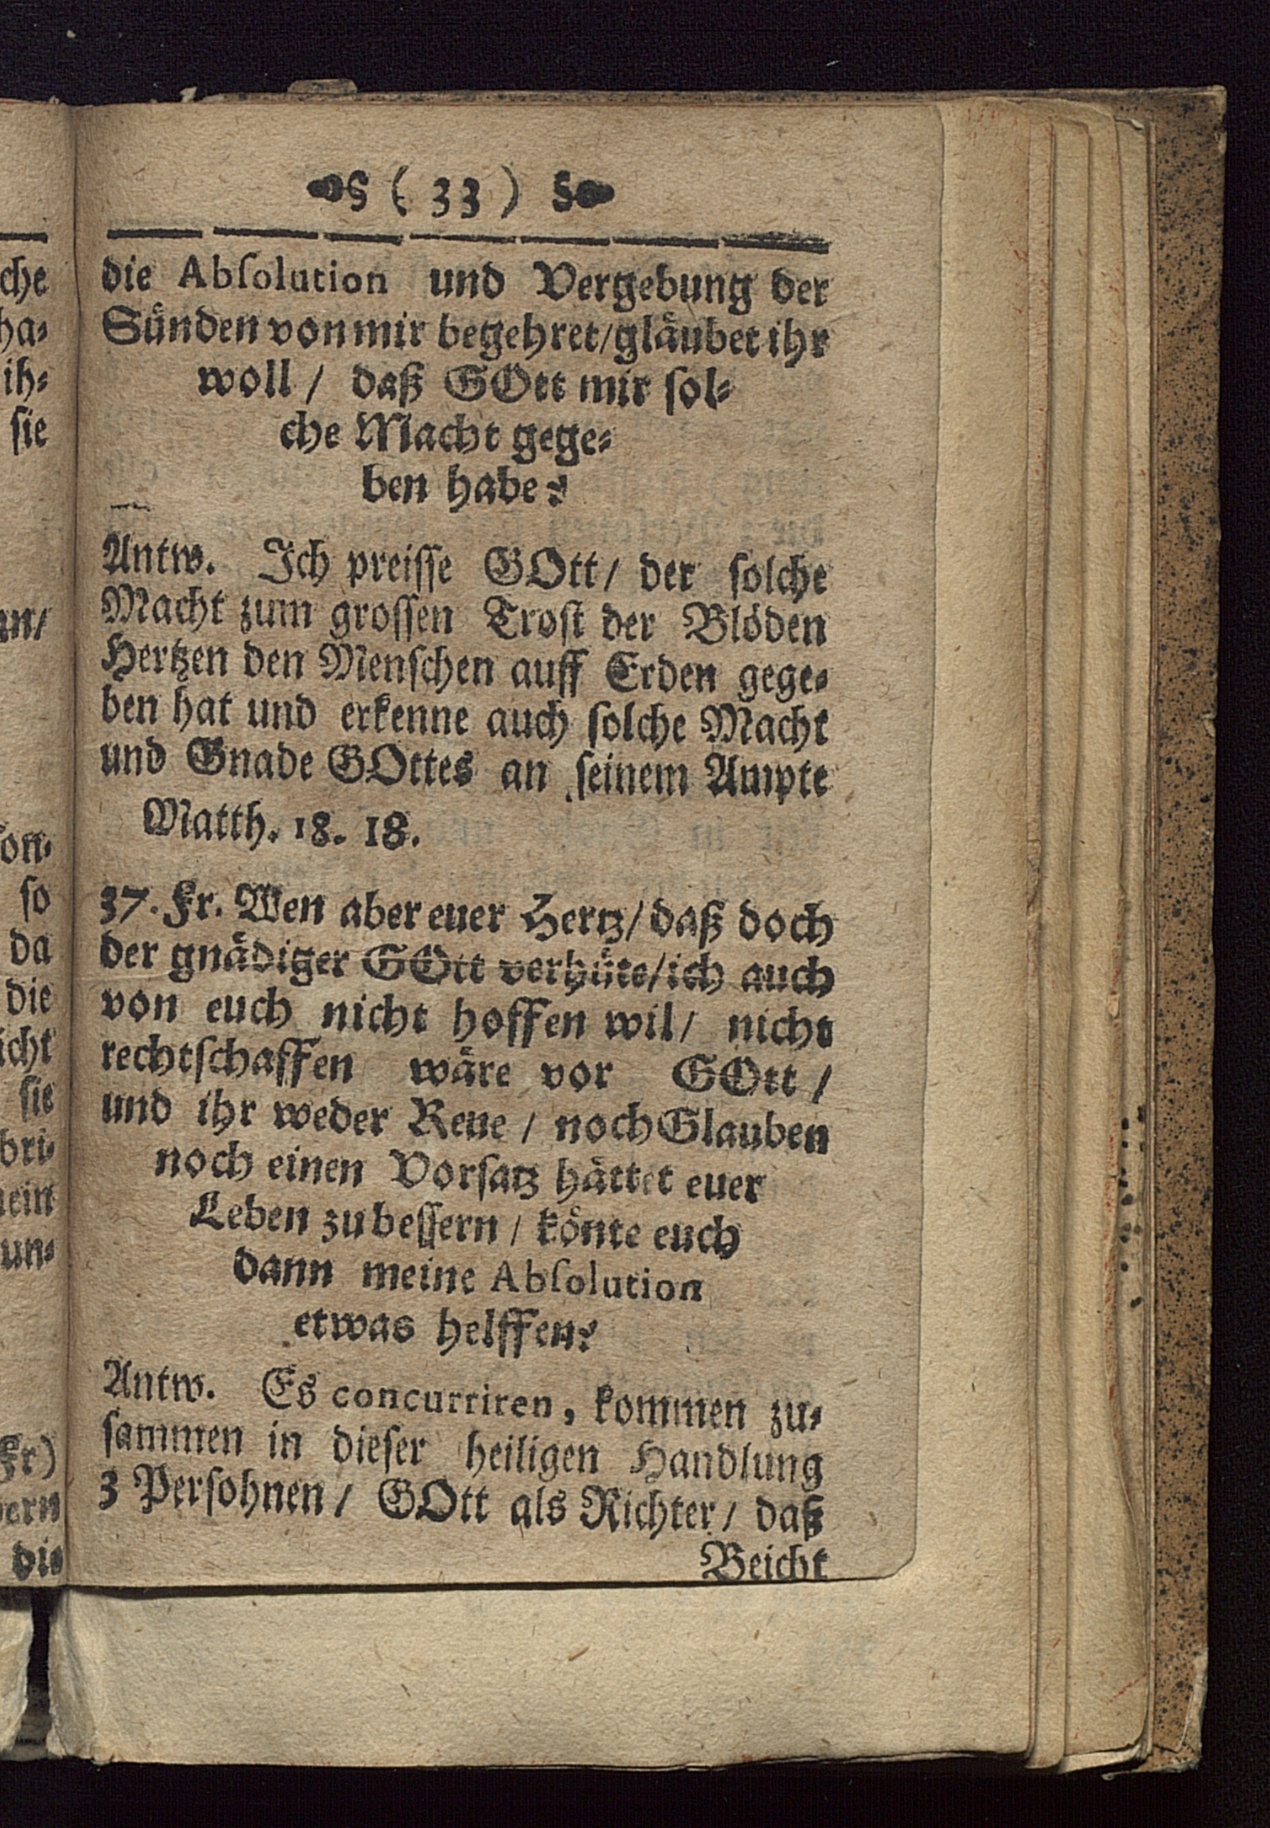 ( 33 )
die Absolution und Vergebung der
Sünden von mir begehret/gläubet ihr
woll / daß GOtt mir sol-
che Macht gege-
ben habe?
Antw. Ich preisse GOtt/ der solche
Macht zum grossen Trost der Blöden
Hertzen den Menschen auff Erden gege-
ben hat und erkenne auch solche Macht
und Gnade GOttes an seinem Ampte
Matth. 18. 18.
37. Fr. Wen aber euer Hertz/ daß doch
der gnädiger GOtt verhüte/ich auch
von euch nicht hoffen wil/ nicht
rechtschaffen wäre vor GOtt /
und ihr weder Reue / noch Glauben
noch einen Vorsatz hättet euer
Leben zu bessern / könte euch
dann meine Absolution
etwas helffen?
Antw. Es concurriren, kommen zu-
sammen in dieser heiligen Handlung
3 Persohnen/ GOtt als Richter/ daß
Beicht